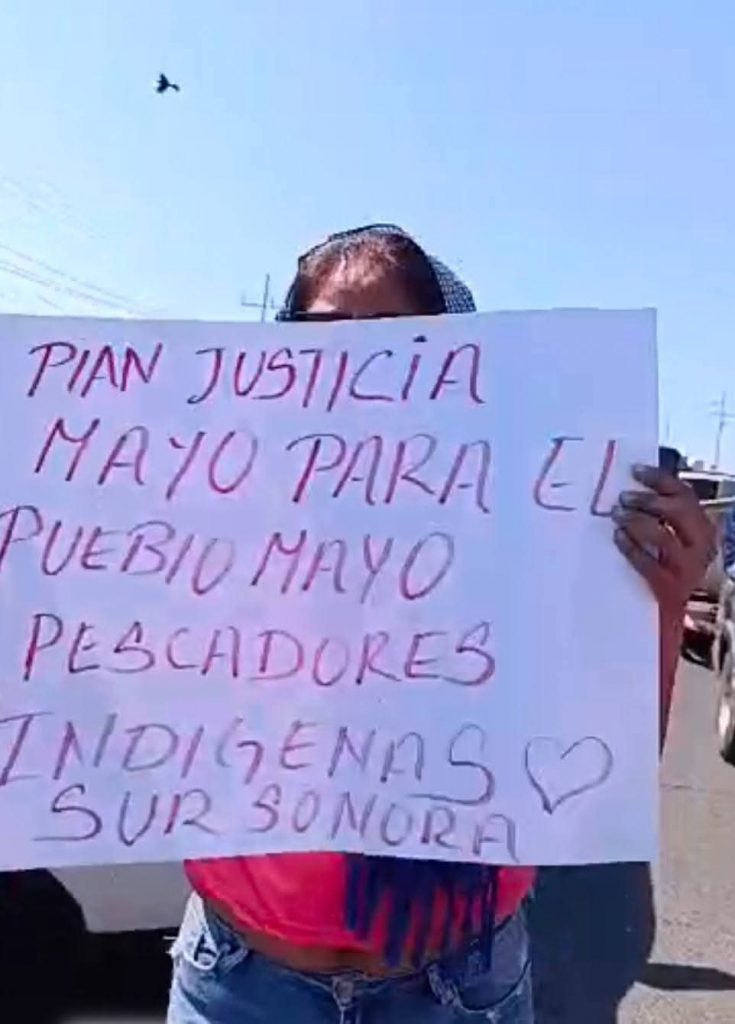 PIAN JUSTICIA
MAYO PARA EL
PUEBIO MAYO
PESCADORES
INDIGENAS
SUR SONORA